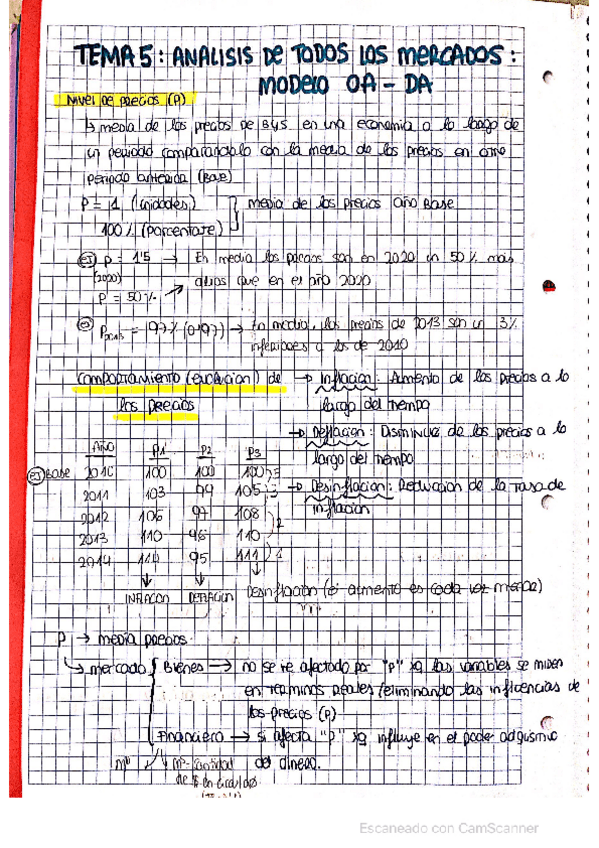 TEMA 5: ANALISIS DE TODOS LOS MERCADOS:
MODELO OA - DA
NIVEL DE PRECIOS (P)
↳ media de los precios de BYS en una economia a lo largo de
un periodo comparandolo con la media de los precios en otro
periodo anterior (BASE)
P = 1 (unidades)
100% (porcentaje)
media de los precios año Base
EJ P = 1'5 → En media los precios son en 2020 un 50% más
(2020)
altos que en el año
P = 50%
P2013 = 97% (0'97) → En media, los precios de 2013 son un 3%
inferiores a los de 2010
COMPORTAMIENTO (evolucion) de
los precios
→ Inflacion: Aumento de los precios a lo
largo del tiempo
→ Deflacion: Disminuc de los precios a lo
largo del tiempo
→ Desinflacion: Reduccion de la tasa de
inflacion
AÑO P1 P2 P3
EJ BASE 2010 100 100 100
2011 103 99 105
2012 106 97 108
2013 110 96 110
2014 114 95 111
INFLACION DEFLACION Desinflacion (el aumento es cada vez menor)
P → media precios
↳ mercado Bienes → no se ve afectado por "P" xq las variables se miden
en terminos reales (eliminando las influencias de
los precios (P)
Financiero → si afecta "P" xq influye en el poder adquisitivo
del dinero.
cantidad
de $ en
Escaneado con CamScanner